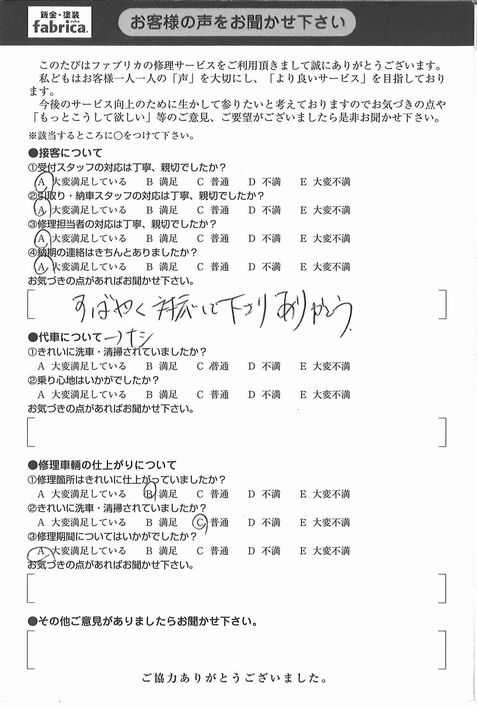 鈑金・塗装
fabrica.
お客様の声をお聞かせ下さい
このたびはファブリカの修理サービスをご利用頂きまして誠にありがとうございます。
私どもはお客様一人一人の「声」を大切にし、「より良いサービス」を目指しており
ます。
今後のサービス向上のために生かして参りたいと考えておりますのでお気づきの点や
「もっとこうして欲しい」等のご意見、ご要望がございましたら是非お聞かせ下さい。
※該当するところに○をつけて下さい。
●接客について
①受付スタッフの対応は丁寧、親切でしたか？
A 大変満足している B 満足 C 普通 D 不満 E 大変不満
②引取り・納車スタッフの対応は丁寧、親切でしたか？
A 大変満足している B 満足 C 普通 D 不満 E 大変不満
③修理担当者の対応は丁寧、親切でしたか？
A 大変満足している B 満足 C 普通 D 不満 E 大変不満
④納期の連絡はきちんとありましたか？
A 大変満足している B 満足 C 普通 D 不満 E 大変不満
お気づきの点があればお聞かせ下さい。
すばやく対応して下さりありがとう.
●代車について→ナシ
①きれいに洗車・清掃されていましたか？
A 大変満足している B 満足 C 普通 D 不満 E 大変不満
②乗り心地はいかがでしたか？
A 大変満足している B 満足 C 普通 D 不満 E 大変不満
お気づきの点があればお聞かせ下さい。
●修理車輌の仕上がりについて
①修理箇所はきれいに仕上がっていましたか？
A 大変満足している B 満足 C 普通 D 不満 E 大変不満
②きれいに洗車・清掃されていましたか？
A 大変満足している B 満足 C 普通 D 不満 E 大変不満
③修理期間についてはいかがでしたか？
A 大変満足している B 満足 C 普通 D 不満 E 大変不満
お気づきの点があればお聞かせ下さい。
●その他ご意見がありましたらお聞かせ下さい。
ご協力ありがとうございました。